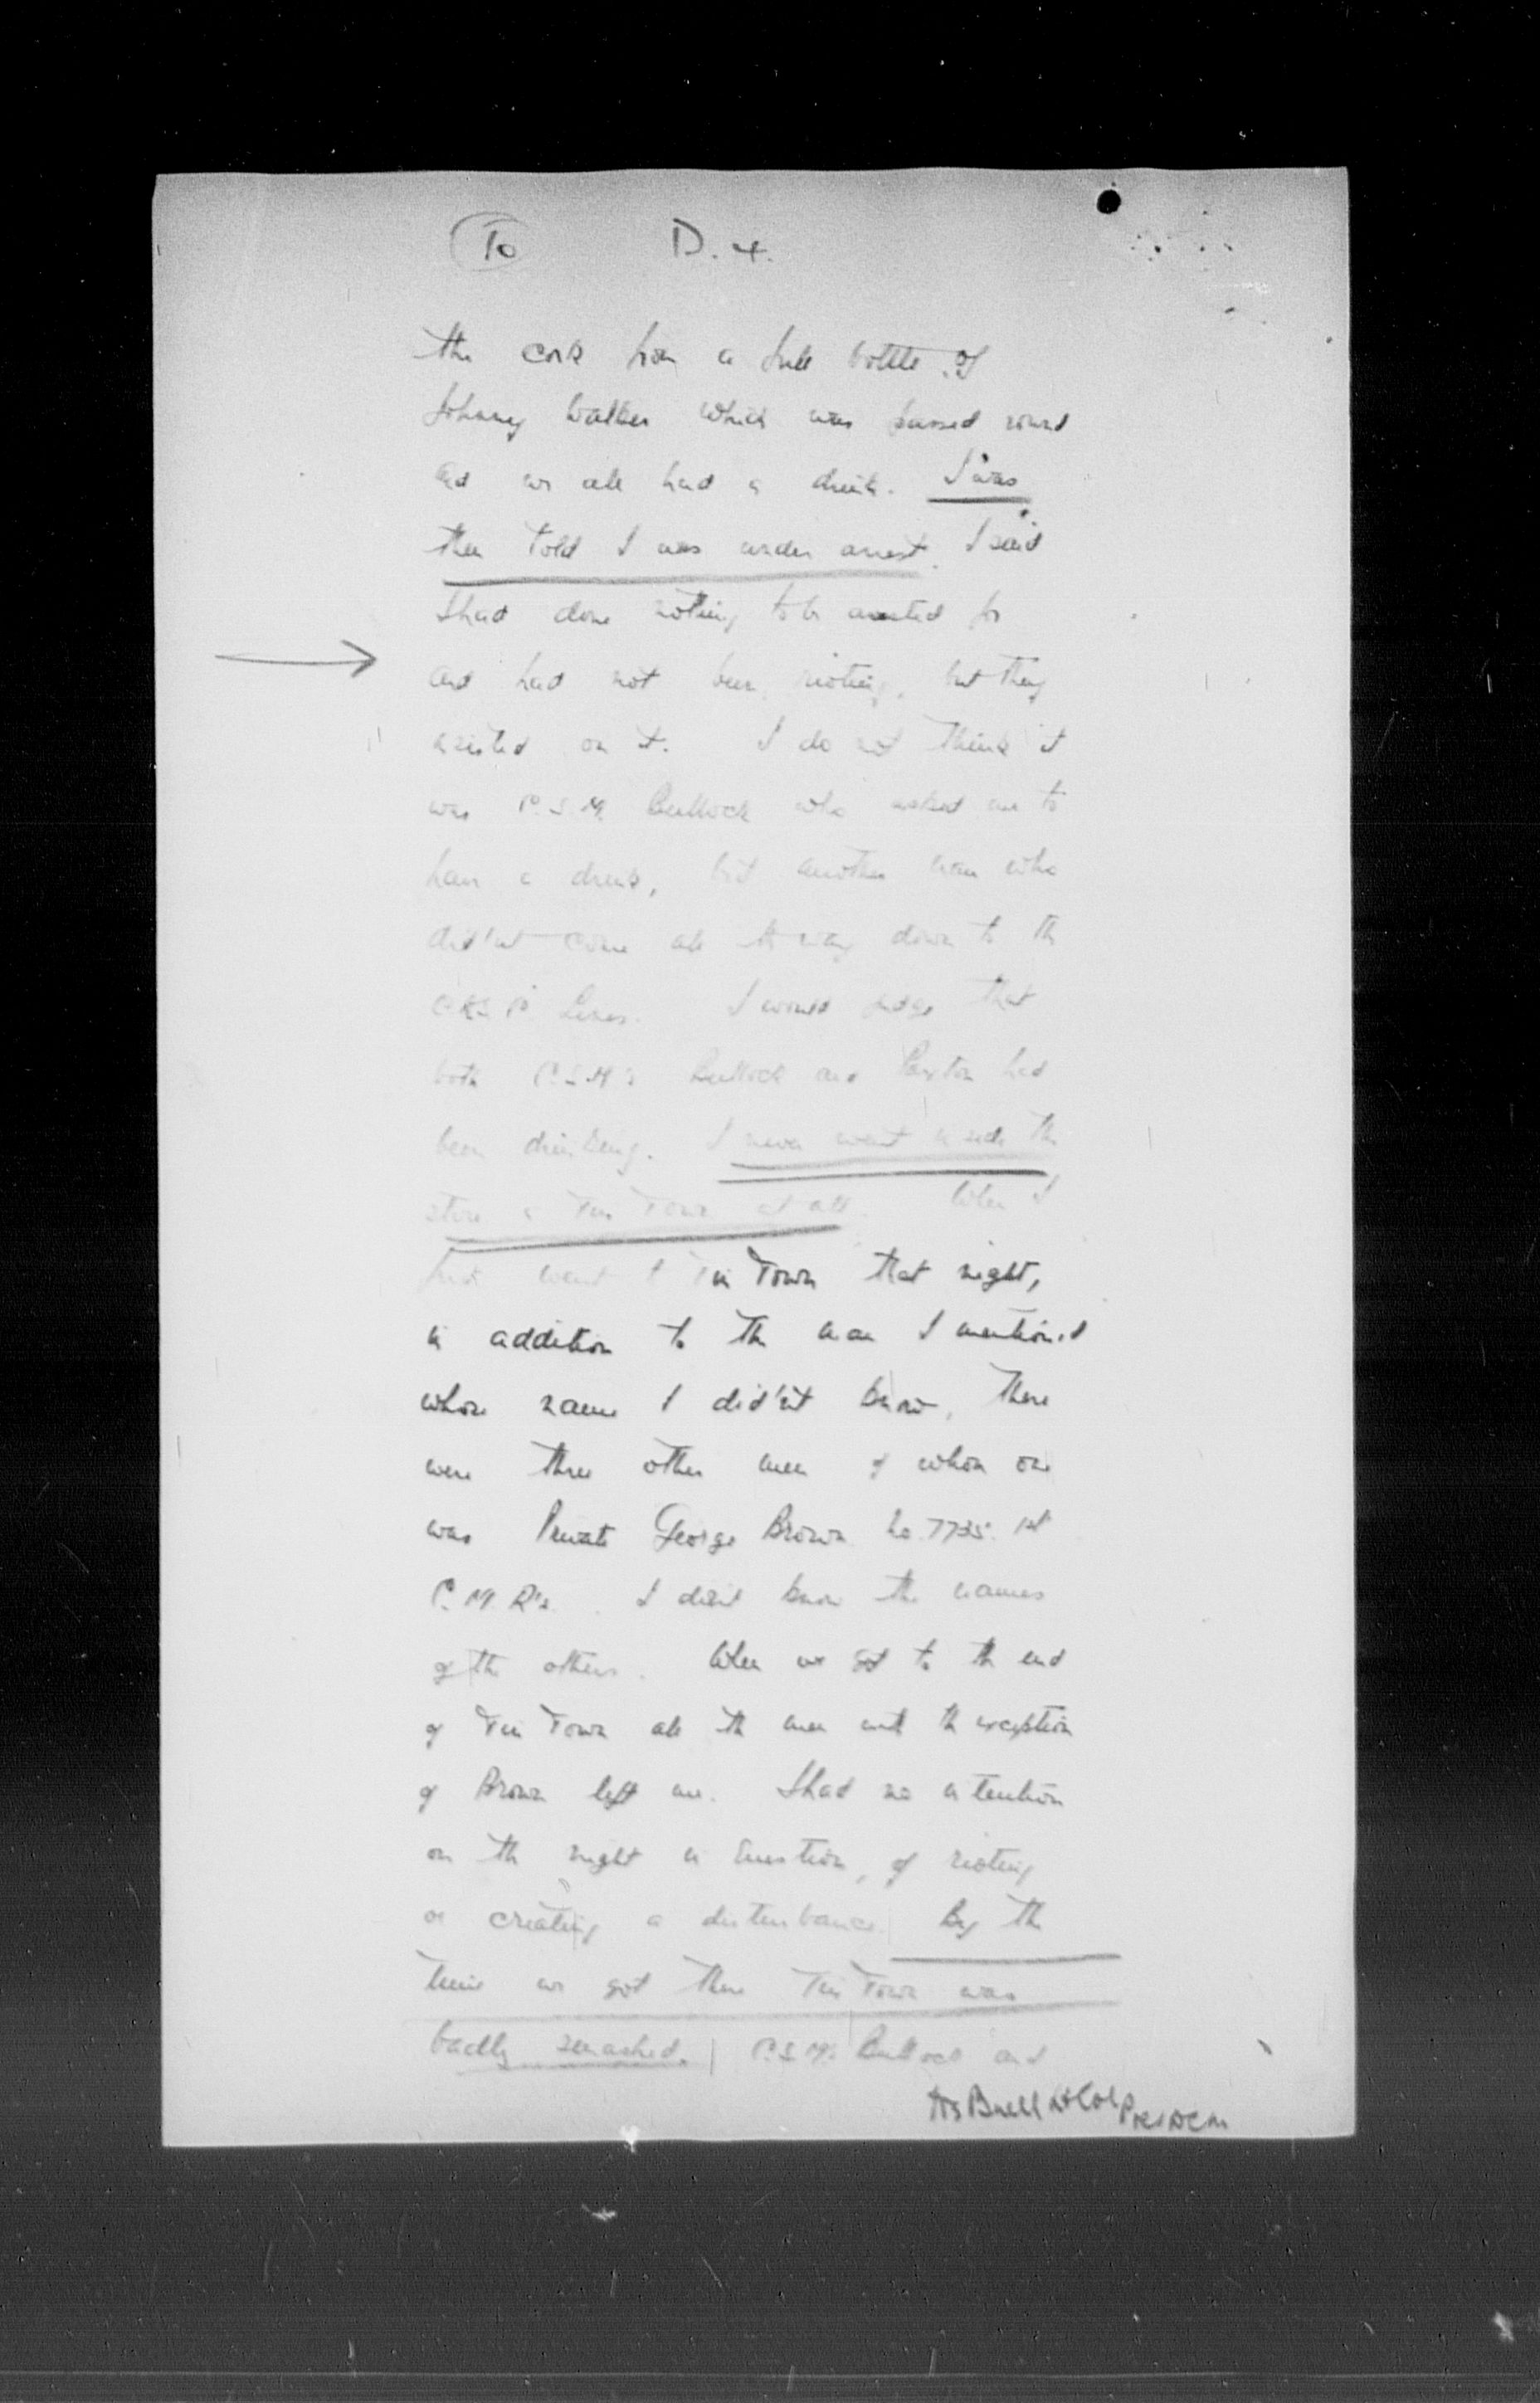 To D. 4.
the cork from a full bottle of
Johnny Walker which was passed round
and we all had a drink. I was
then told I was under arrest. I said
I had done nothing to be arrested for
and had not been rioting, but they
insisted on it. I do not think it
was C.S.M. Bullock who asked me to
have a drink, but another man who
did'nt come all the way down to the
Lines. I would judge that
both C.S.M's Bullock and Paxton had
been drinking. I never went inside the
store in Tin Town at all. When I
first went to Tin Town that night,
in addition to the man I mentioned
whose name I did'nt know, there
were three other men of whom one
was Private George Brown No. 7735. 1st
C.M.R's. I didnt know the names
of the others. When we got to the end
of Tin Town all the men with the exception
of Brown left me. I had no intention
on the night in question, of rioting
or creating a disturbance. By the
time we got there Tin Town was
badly smashed. | C.S.M. Bullock and
Buell Lt Col President